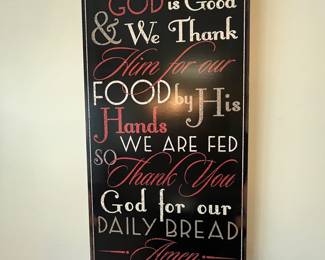 GOD is Good
& We Thank
Him for our
FOOD by His
Hands
WE ARE FED
SO
Thank You
God for our
DAILY BREAD
Amen